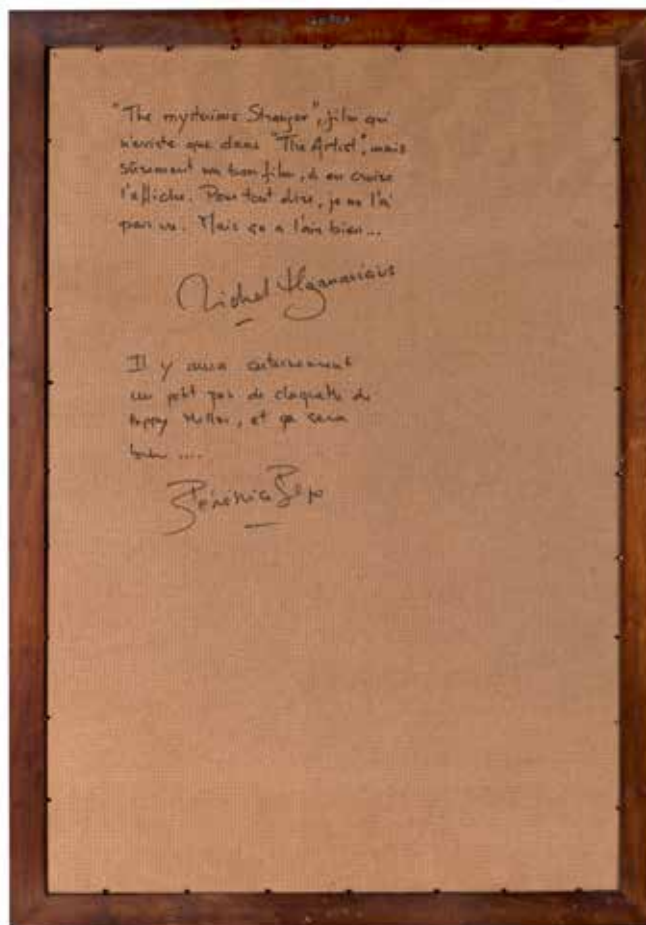 "The mysterious Stranger", film qui
n'existe que dans "The Artist", mais
sûrement un bon film, à en croire
l'affiche. Pour tout dire, je ne l'ai
pas vu. Mais ça a l'air bien...
Michel Hazanavicius
Il y aura certainement
un petit pas de claquette de
Peppy Miller, et ça sera
bien ....
Bérénice Bejo